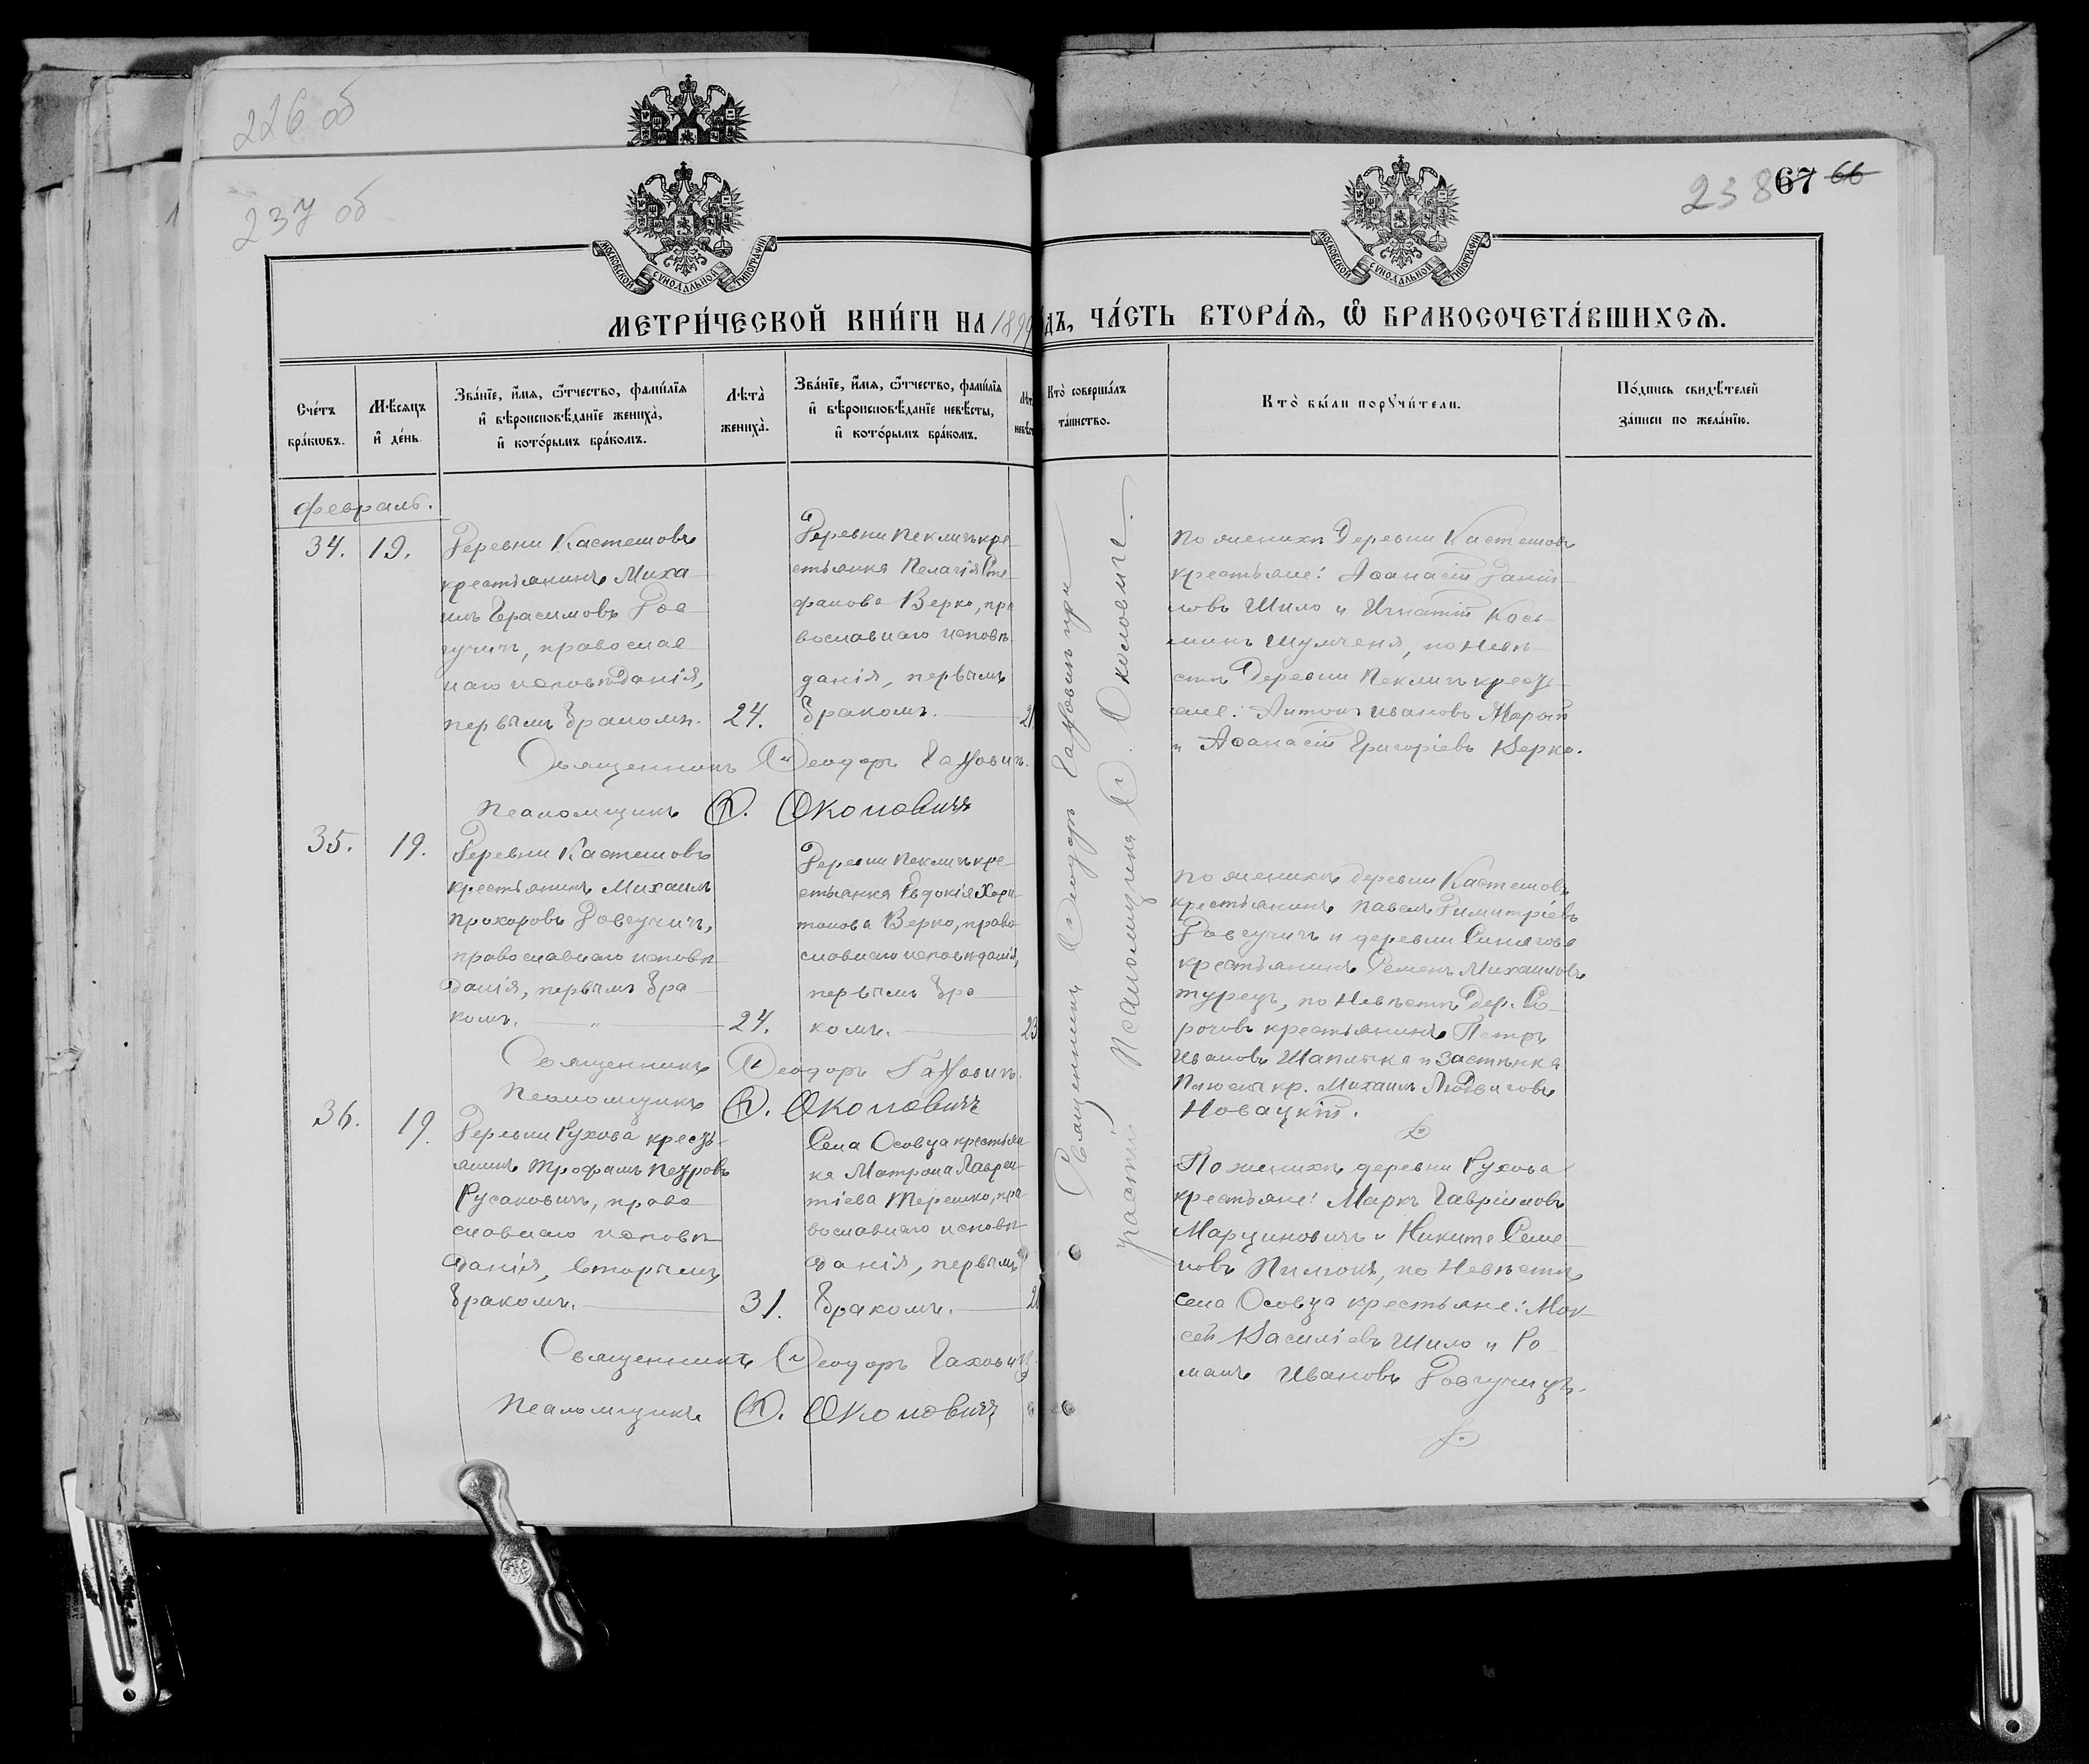 226 об
237 об
238 67 66
МОСКОВСКОЙ СУНОДАЛЬНОЙ ТИПОГРАФІИ
МОСКОВСКОЙ СУНОДАЛЬНОЙ ТИПОГРАФІИ
МЕТРИ́ЧЕСКОЙ КНИ́ГИ НА 1899
дъ, ЧА́СТЬ ВТОРА́Ѧ, Ѡ҆ БРАКОСОЧЕТА́ВШИХСѦ.
Сче́тъ
бра́кѡвъ.
Мѣ́сяцъ
и҆ де́нь
Зва́нїе, и҆́мѧ, ѻ҆́тчество, фамѵ́лїѧ
и҆ вѣроисповѣ́данїе жениха̀,
и҆ кото́рымъ бра́комъ.
Лѣ́та̀
жениха̀.
Зва́нїе, и҆́мѧ, ѻ҆́тчество, фамѵ́лїѧ
и҆ вѣроисповѣ́данїе невѣ́сты,
и҆ кото́рымъ бра́комъ.
Кто̀ соверша́лъ
та́инство.
Кто̀ бы́ли порꙋчи́тели.
По́дпись свидѣ́телей
за́писи по жела́нїю.
февраль.
34. 19.
Деревни Кастешовъ
крестьянинъ Миха
илъ Герасимовъ Дов
гучичъ, православ
наго исповѣданія,
первымъ бракомъ. 24.
Деревни Пекличъ кре
стьянка Пелагія Сте
фанова Верко, пра
вославнаго исповѣ
данія, первымъ
бракомъ. 21
Священникъ Ѳеодоръ Гаховичъ.
Псаломщикъ Ѳ. Околовичъ
По женихѣ деревни Кастешовъ
крестьяне: Аѳанасій Дании
ловъ Шило и Игнатій Кось
минъ Шумченя, по невѣ
стѣ деревни Пекличъ кресть
яне: Антонъ Ивановъ
и Аѳанасій Григоріевъ Верко.
35. 19.
Деревни Кастешовъ
крестьянинъ Михаилъ
Прохоровъ Довгучичъ,
православнаго исповѣ
данія, первымъ бра
комъ. 24.
Деревни Пекличъ кре
стьянка Евдокія Хари
тонова Верко, право
славнаго исповѣданія,
первымъ бра
комъ. 23
Священникъ Ѳеодоръ Гаховичъ.
Псаломщикъ Ѳ. Околовичъ
По женихѣ деревни Кастешовъ
крестьянинъ Павелъ Димитріевъ
Довгучичъ и деревни Синягова
крестьянинъ Семенъ Михаиловъ
Турецъ, по невѣстѣ дер. Со
рочовъ крестьянинъ Петръ
Ивановъ Шаплыка и застѣнка
кр. Михаилъ Людвиговъ
Новацкій.
36. 19.
Деревни Рухова кресть
янинъ Трофимъ Петровъ
Русаковичъ, право
славнаго исповѣ
данія, вторымъ
бракомъ. 31.
Села Осовца крестьян
ка Матрона Лаврен
тіева Терешко, пра
вославнаго исповѣ
данія, первымъ
бракомъ.
Священникъ Ѳеодоръ Гаховичъ
Псаломщикъ Ѳ. Околовичъ
По женихѣ деревни Рухова
крестьяне: Маркъ Гавріиловъ
Марциновичъ и Никита Семе
новъ Пилюкъ, по невѣстѣ
села Осовца крестьяне: Мои
сей Василіевъ Шило и Ро
манъ Ивановъ Довгучичъ.
Священникъ Ѳеодоръ Гаховичъ при
участіи Псаломщика Ѳ. Околовича.